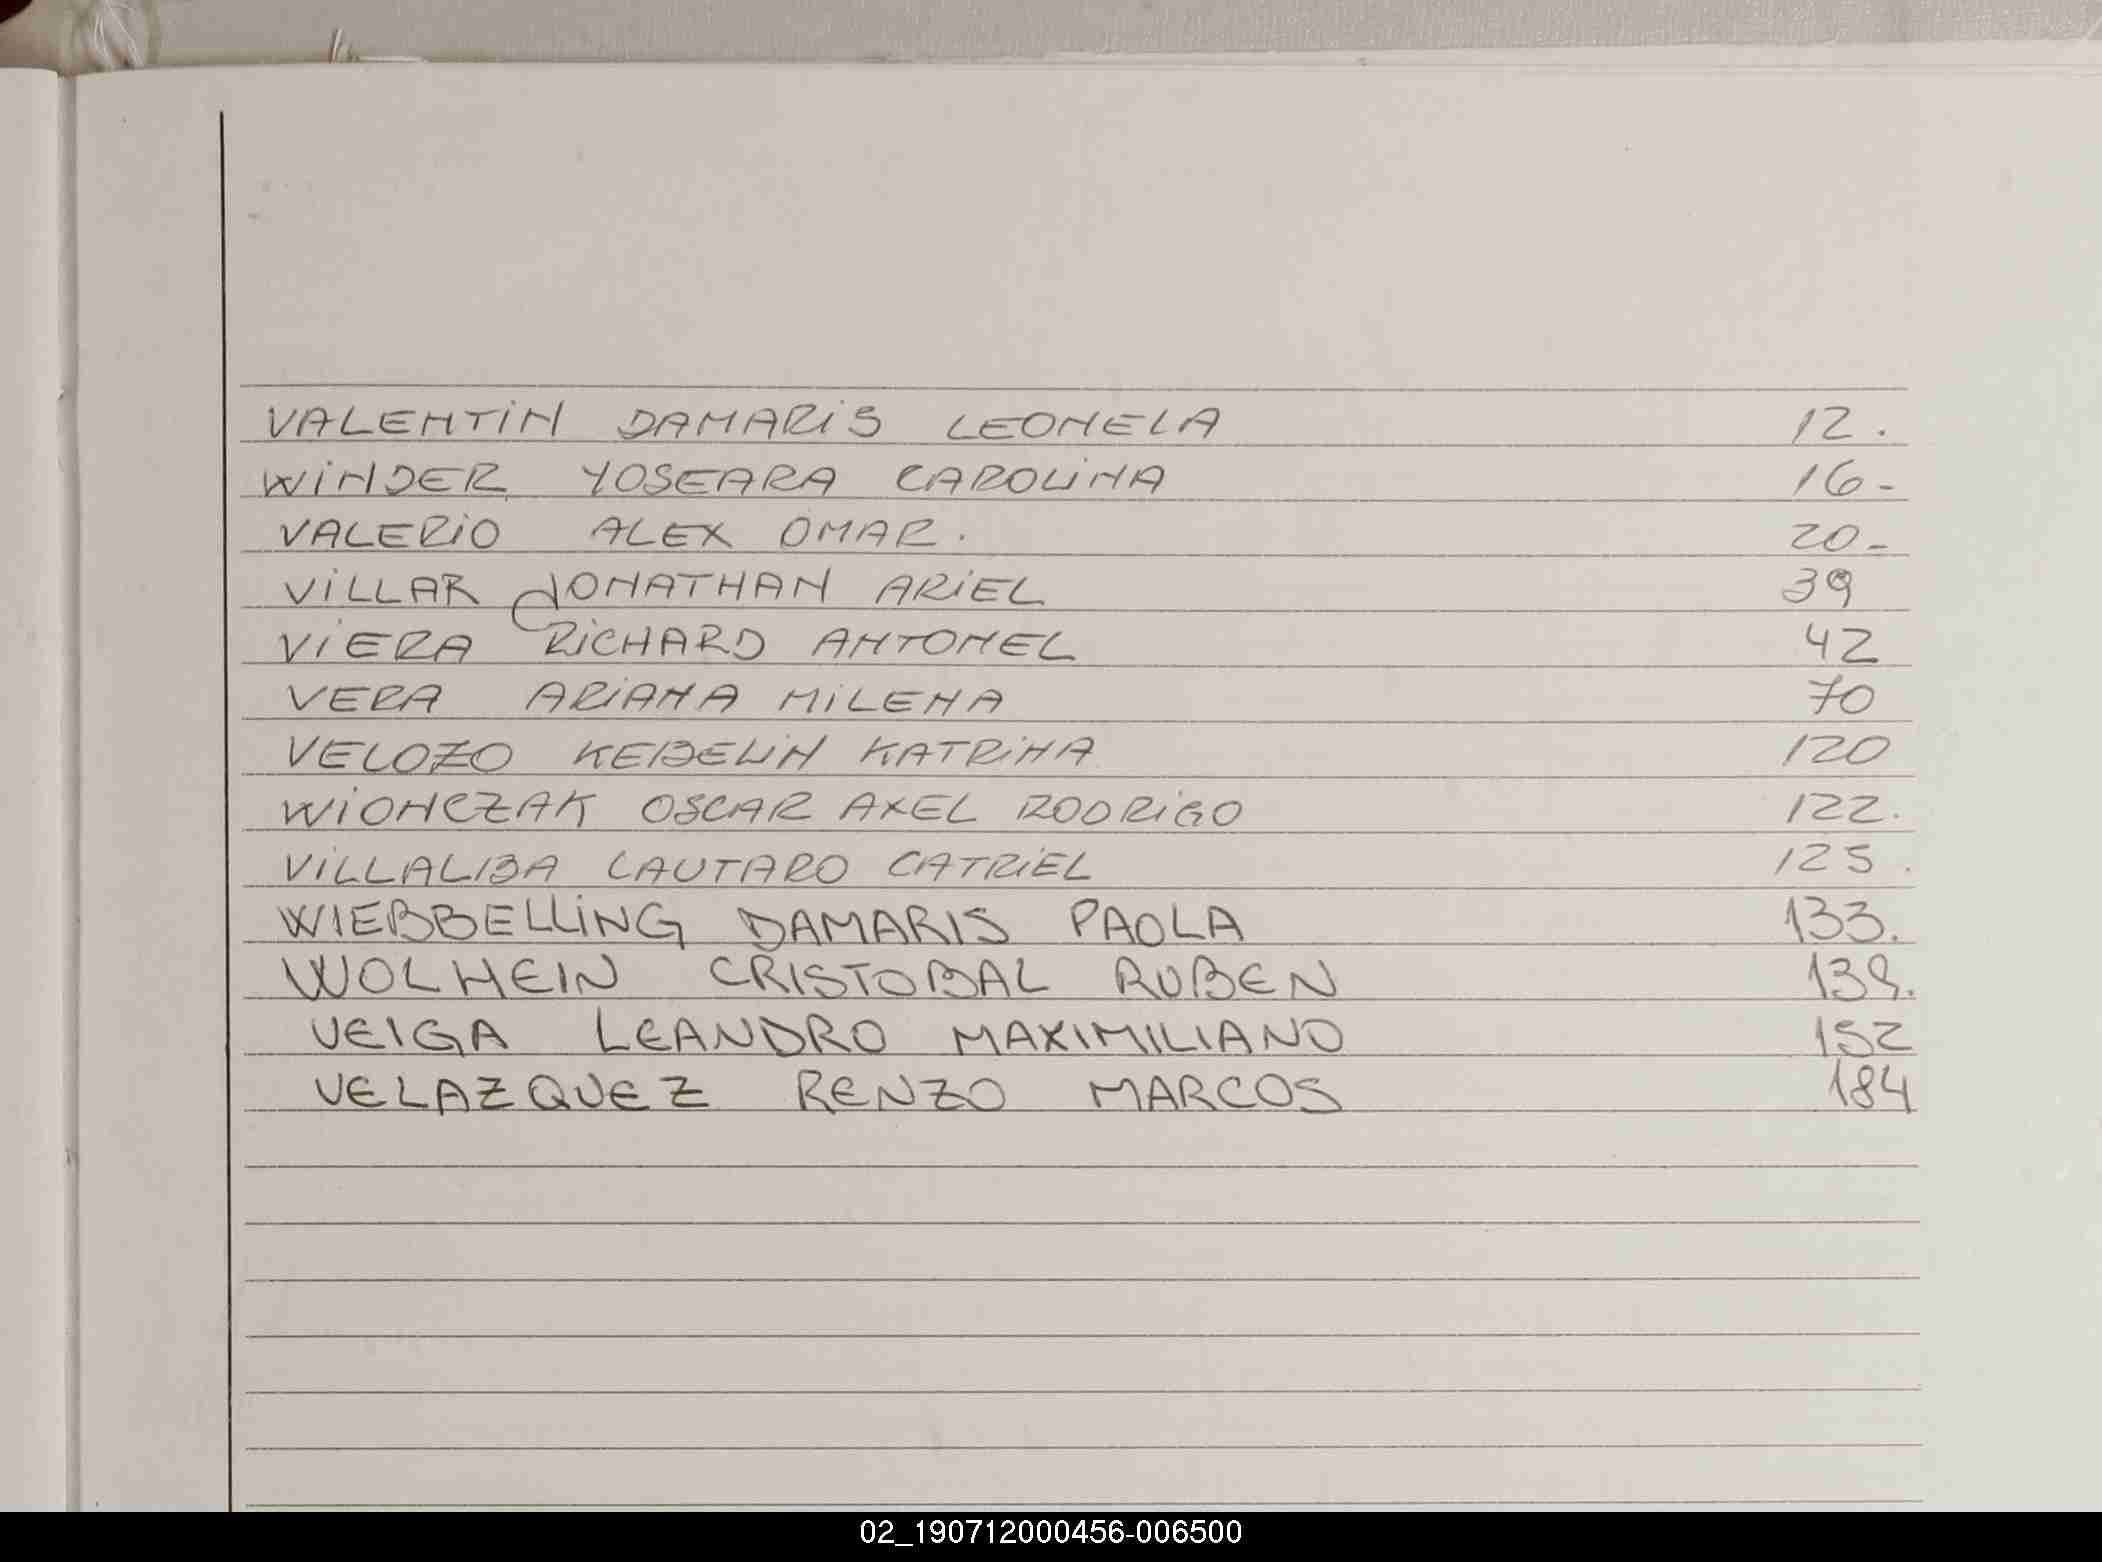 VALENTIN DAMARIS LEONELA 12.
WINDER YOSEARA CAROLINA 16-
VALERIO ALEX OMAR. 20-
VILLAR JONATHAN ARIEL 39
VIERA RICHARD ANTONEL 42
VERA ARIANA MILENA 70
VELOZO KEBELIN KATRINA 120
WIONCZAK OSCAR AXEL RODRIGO 122.
VILLALBA LAUTARO CATRIEL 125.
WIEBBELLING DAMARIS PAOLA 133.
WOLHEIN CRISTOBAL RUBEN 139.
VEIGA LEANDRO MAXIMILIANO 152
VELAZQUEZ RENZO MARCOS 184
02_190712000456-006500